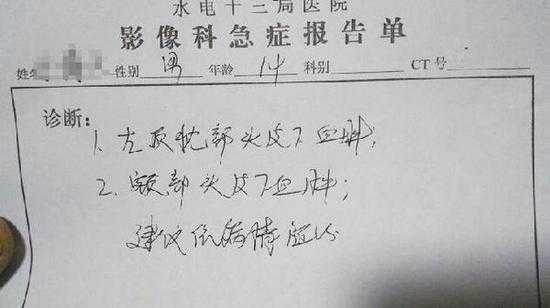 水电十三局医院
影像科急症报告单
姓名 性别 男 年龄 14 科别 CT号
诊断:
1. 左顶枕部头皮下血肿,
2. 额部头皮下血肿;
建议依病情